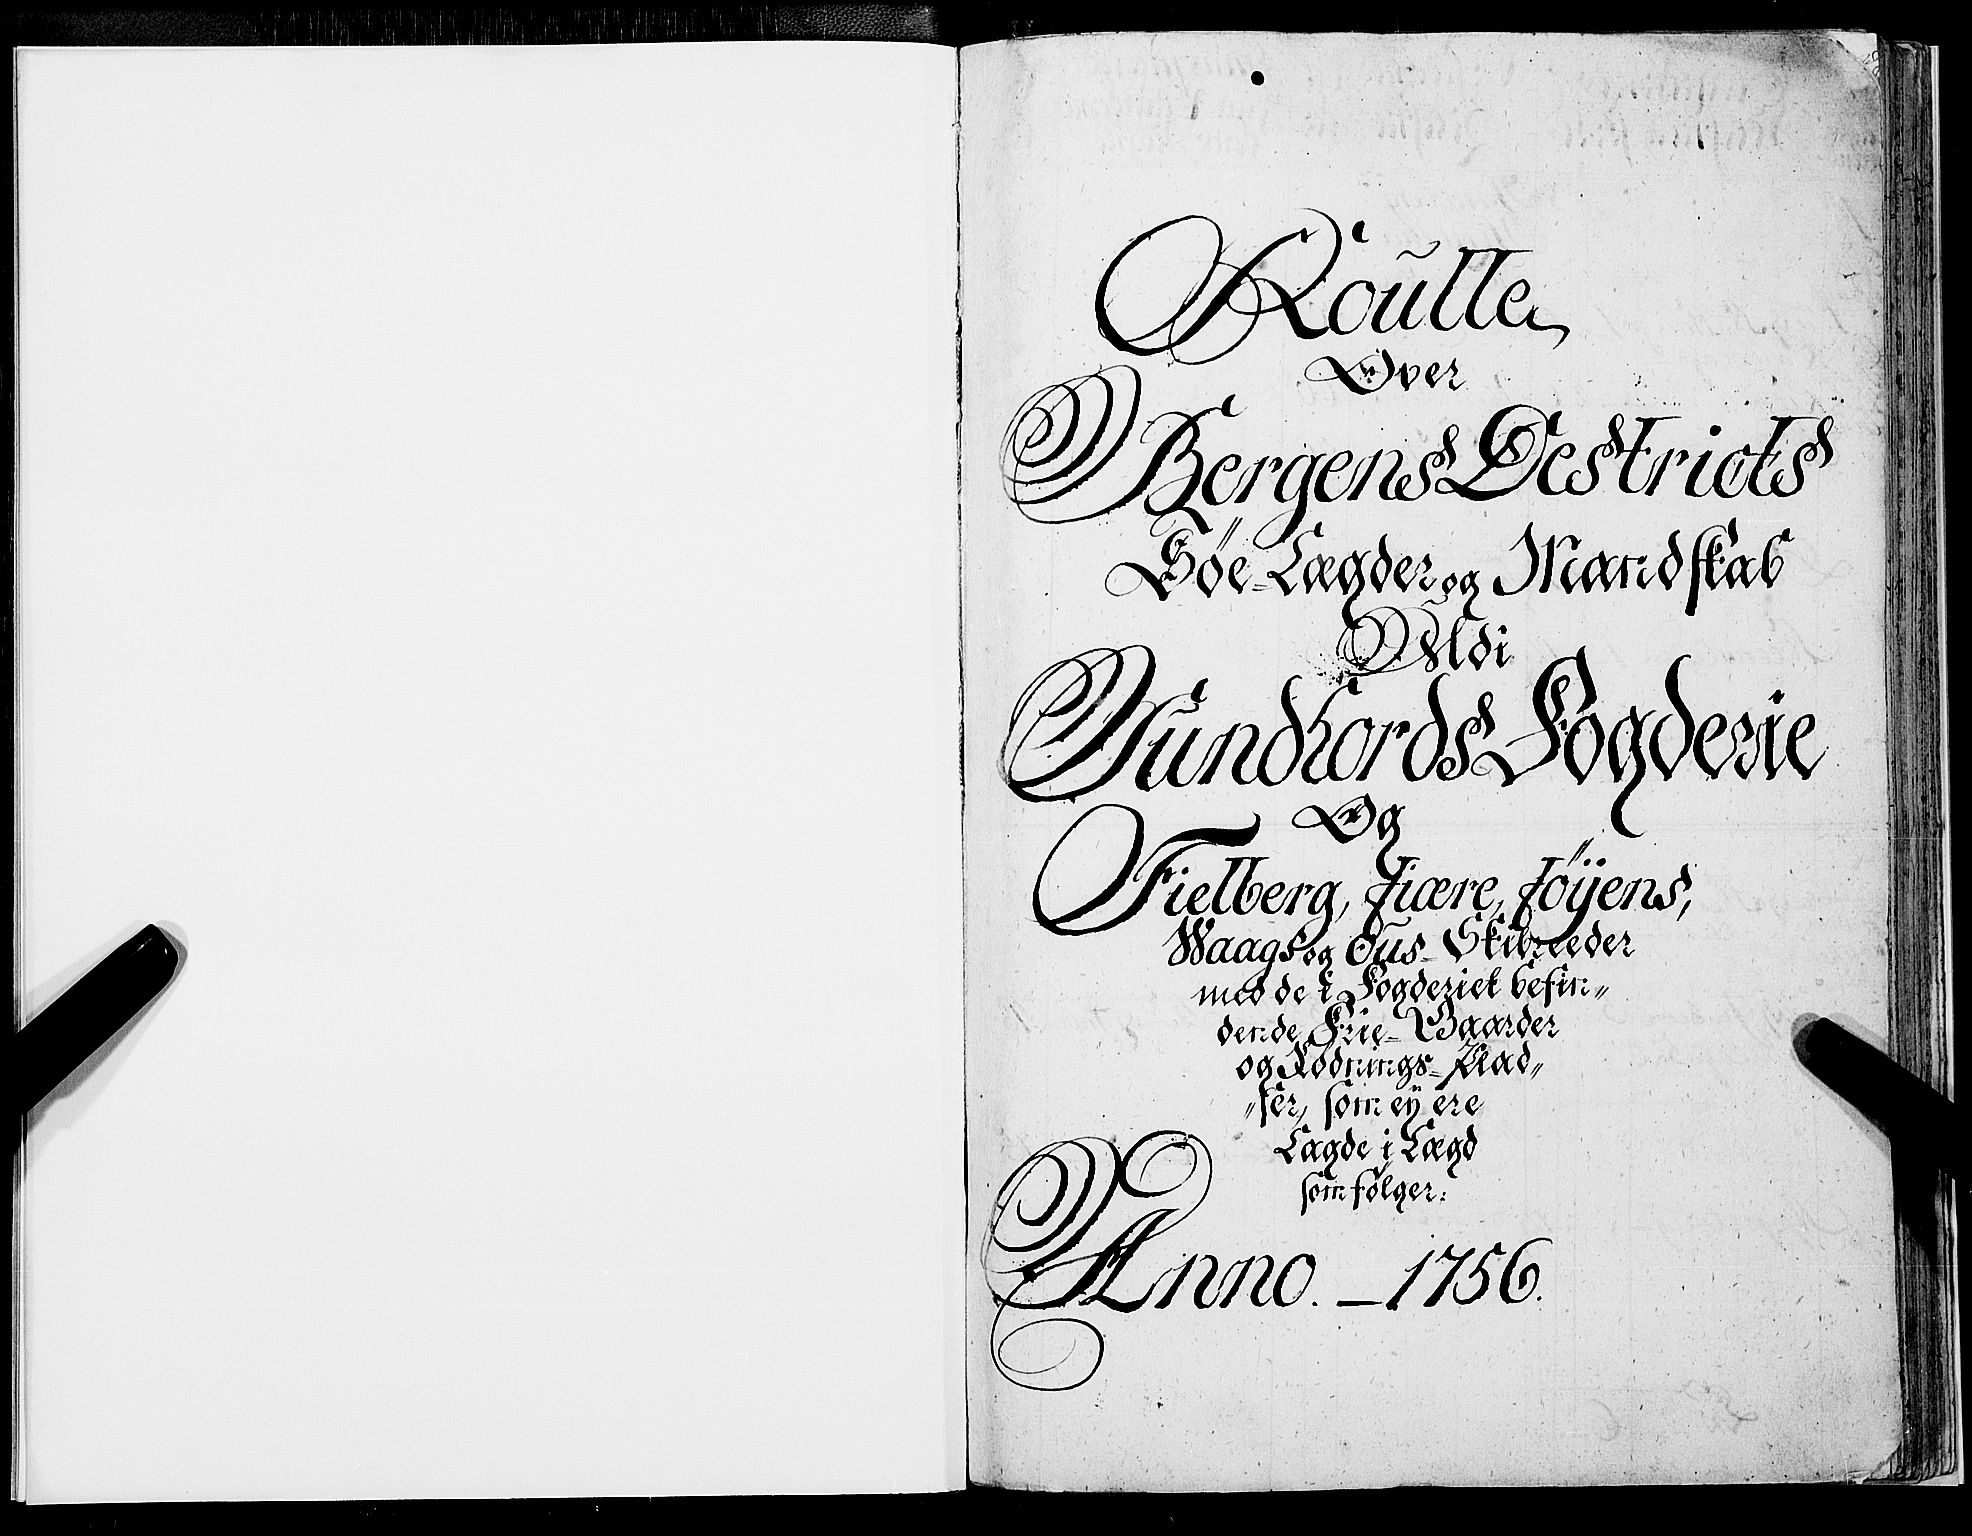 Roulle
Over
Bergens Destricts
Søe-Lægder og Mandskab
Udi
Sundhords Fogderie
Og
Fielberg, Fiære, Føÿens,
Waags og Ous-Skibreeder
med de i Fogderiet befin„
dende Frie-Gaarder
og Rødnings-Plad„
„ser, som eÿ ere
Lagde i Lægd
som følger:
Anno. – 1756.